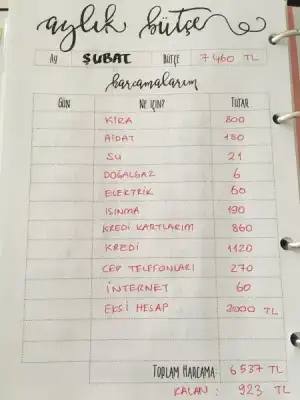 aylık bütçe
Ay ŞUBAT BÜTÇE 7460 TL
harcamalarım
GÜN NE İÇİN? TUTAR
KİRA 800
AİDAT 150
SU 21
DOĞALGAZ 6
ELEKTRİK 60
ISINMA 190
KREDİ KARTLARIM 860
KREDİ 1120
CEP TELEFONLARI 270
İNTERNET 60
EKSİ HESAP 3000 TL
TOPLAM HARCAMA: 6537 TL
KALAN : 923 TL